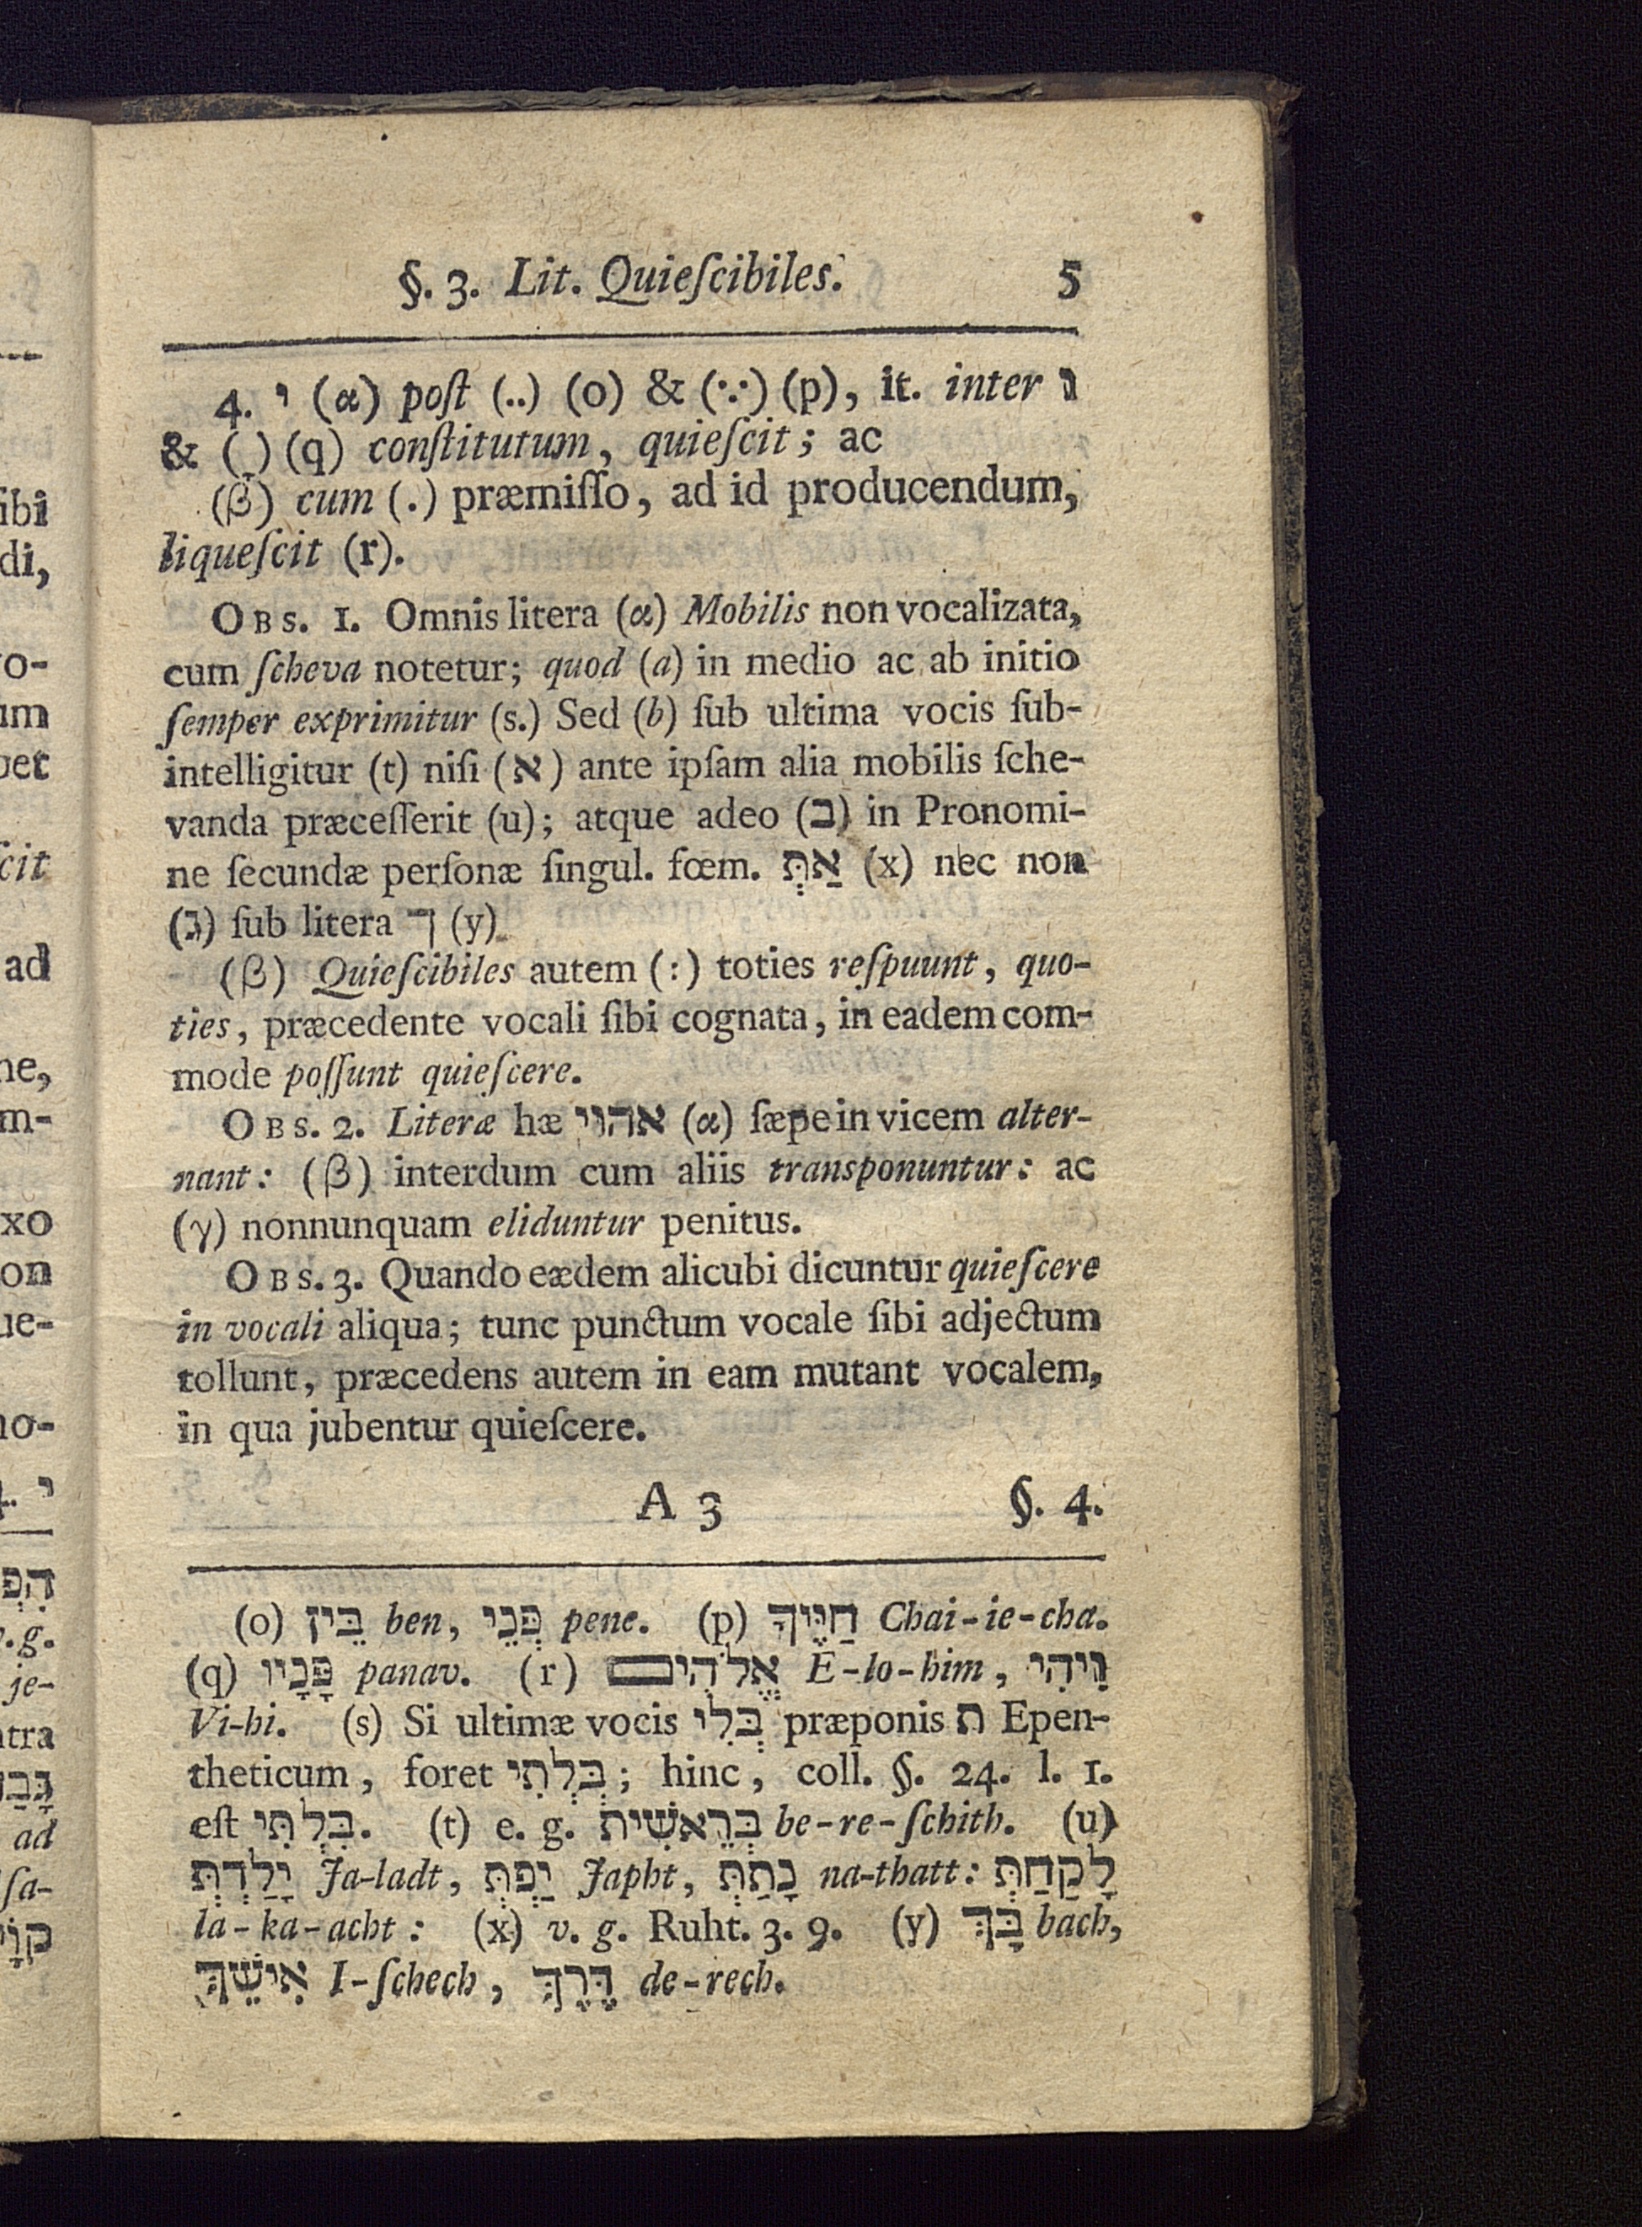 §. 3. Lit. Quieſcibiles. 5
4. י (α) poſt (..) (o) & (∵) (p), it. inter ו
& ( ָ ) (q) conſtitutum, quieſcit; ac
(β) cum (.) præmiſſo, ad id producendum,
liqueſcit (r).
OBS. 1. Omnis litera (α) Mobilis non vocalizata,
cum ſcheva notetur; quod (a) in medio ac ab initio
ſemper exprimitur (s.) Sed (b) ſub ultima vocis ſub-
intelligitur (t) niſi (א) ante ipſam alia mobilis ſche-
vanda præceſſerit (u); atque adeo (ב) in Pronomi-
ne ſecundæ perſonæ ſingul. fœm. אַתְּ (x) nec non
(ג) ſub litera ך (y)
(β) Quieſcibiles autem (:) toties reſpuunt, quo-
ties, præcedente vocali ſibi cognata, in eadem com-
mode poſſunt quieſcere.
OBS. 2. Literæ hæ אהוי (α) ſæpe in vicem alter-
nant: (β) interdum cum aliis transponuntur: ac
(γ) nonnunquam eliduntur penitus.
OBS. 3. Quando eædem alicubi dicuntur quieſcere
in vocali aliqua; tunc punctum vocale ſibi adjectum
tollunt, præcedens autem in eam mutant vocalem,
in qua jubentur quieſcere.
A 3 §. 4.
(o) בֵּין ben, פְּנֵי pene. (p) חַיֶּיךָ Chai-ie-cha.
(q) פָּנָיו panav. (r) אֱלֹהִים E-lo-him, וִיהִי
Vi-hi. (s) Si ultimæ vocis בְּלִי præponis ת Epen-
theticum, foret בְּלְתִי; hinc, coll. §. 24. l. 1.
eſt בִּלְתִּי. (t) e. g. בְּרֵאשִׁית be-re-ſchith. (u)
יָלַדְתְּ Ja-ladt, יַפְתְּ Japht, נָתַתְּ na-thatt: לָקַחַתְּ
la-ka-acht: (x) v. g. Ruht. 3. 9. (y) בָּךְ bach,
אִישֵׁךְ I-ſchech, דֶּרֶךְ de-rech.